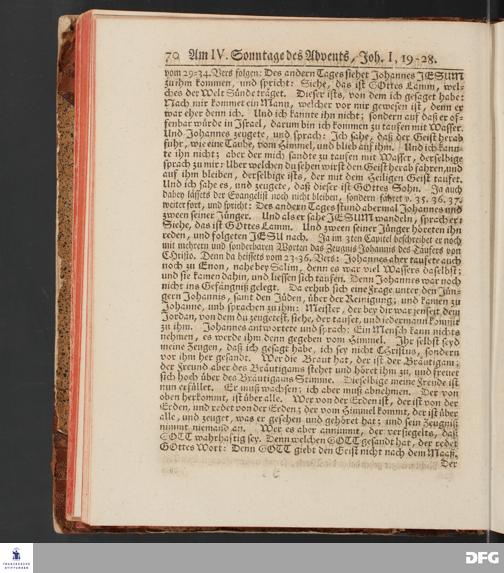 70 Am IV. Sonntage des Advents, Joh. I, 19-28.
vom 29-34. Vers folgen: Des andern Tages siehet Johannes JESUM
zu ihm kommen, und spricht: Siehe, das ist GOttes Lamm, wel-
ches der Welt Sünde träget. Dieser ists, von dem ich gesaget habe:
Nach mir kommet ein Mann, welcher vor mir gewesen ist, denn er
war eher denn ich. Und ich kannte ihn nicht; sondern auf daß er of-
fenbar würde in Israel, darum bin ich kommen zu taufen mit Wasser.
Und Johannes zeugete, und sprach: Ich sahe, daß der Geist herab
fuhr, wie eine Taube, vom Himmel, und blieb auf ihm. Und ich kann-
te ihn nicht; aber der mich sandte zu taufen mit Wasser, derselbige
sprach zu mir: Uber welchen du sehen wirst den Geist herab fahren, und
auf ihm bleiben, derselbige ists, der mit dem Heiligen Geist taufet.
Und ich sahe es, und zeugete, daß dieser ist GOttes Sohn. Ja auch
dabey lässets der Evangelist noch nicht bleiben, sondern fähret v. 35. 36. 37.
weiter fort, und spricht: Des andern Tages stund abermal Johannes und
zween seiner Jünger. Und als er sahe JESUM wandeln, sprach er:
Siehe, das ist GOttes Lamm. Und zween seiner Jünger höreten ihn
reden, und folgeten JESU nach. Ja im 3ten Capitel beschreibet er noch
mit mehrern und sonderbaren Worten das Zeugnis Johannis des Täufers von
Christo. Denn da heissets vom 23-36. Vers: Johannes aber taufete auch
noch zu Enon, nahe bey Salim, denn es war viel Wassers daselbst;
und sie kamen dahin, und liessen sich taufen. Denn Johannes war noch
nicht ins Gefängniß gelegt. Da erhub sich eine Frage unter den Jün-
gern Johannis, samt den Jüden, über der Reinigung; und kamen zu
Johanne, und sprachen zu ihm: Meister, der bey dir war jenseit dem
Jordan, von dem du zeugetest, siehe, der taufet, und iedermann kommt
zu ihm. Johannes antwortete und sprach: Ein Mensch kann nichts
nehmen, es werde ihm denn gegeben vom Himmel. Ihr selbst seyd
meine Zeugen, daß ich gesagt habe, ich sey nicht CHristus, sondern
vor ihm her gesandt. Wer die Braut hat, der ist der Bräutigam;
der Freund aber des Bräutigams stehet und höret ihm zu, und freuet
sich hoch über des Bräutigams Stimme. Dieselbige meine Freude ist
nun erfüllet. Er muß wachsen; ich aber muß abnehmen. Der von
oben herkommt, ist über alle. Wer von der Erden ist, der ist von der
Erden, und redet von der Erden; der vom Himmel kommt, der ist über
alle, und zeuget, was er gesehen und gehöret hat; und sein Zeugniß
nimmt niemand an. Wer es aber annimmt, der versiegelts, daß
GOTT wahrhaftig sey. Denn welchen GOTT gesandt hat, der redet
GOttes Wort: Denn GOTT giebt den Geist nicht nach dem Maaß.
Der
FRANCKESCHE
STIFTUNGEN
DFG